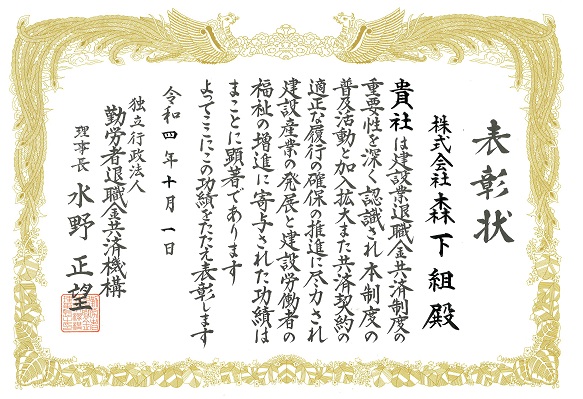 表彰状
株式会社森下組殿
貴社は建設業退職金共済制度の
重要性を深く認識され本制度の
普及活動と加入拡大また共済契約の
適正な履行の確保の推進に尽力され
建設産業の発展と建設労働者の
福祉の増進に寄与された功績は
まことに顕著であります
よってここにこの功績をたたえ表彰します
令和四年十月一日
独立行政法人
勤労者退職金共済機構
理事長 水野正望